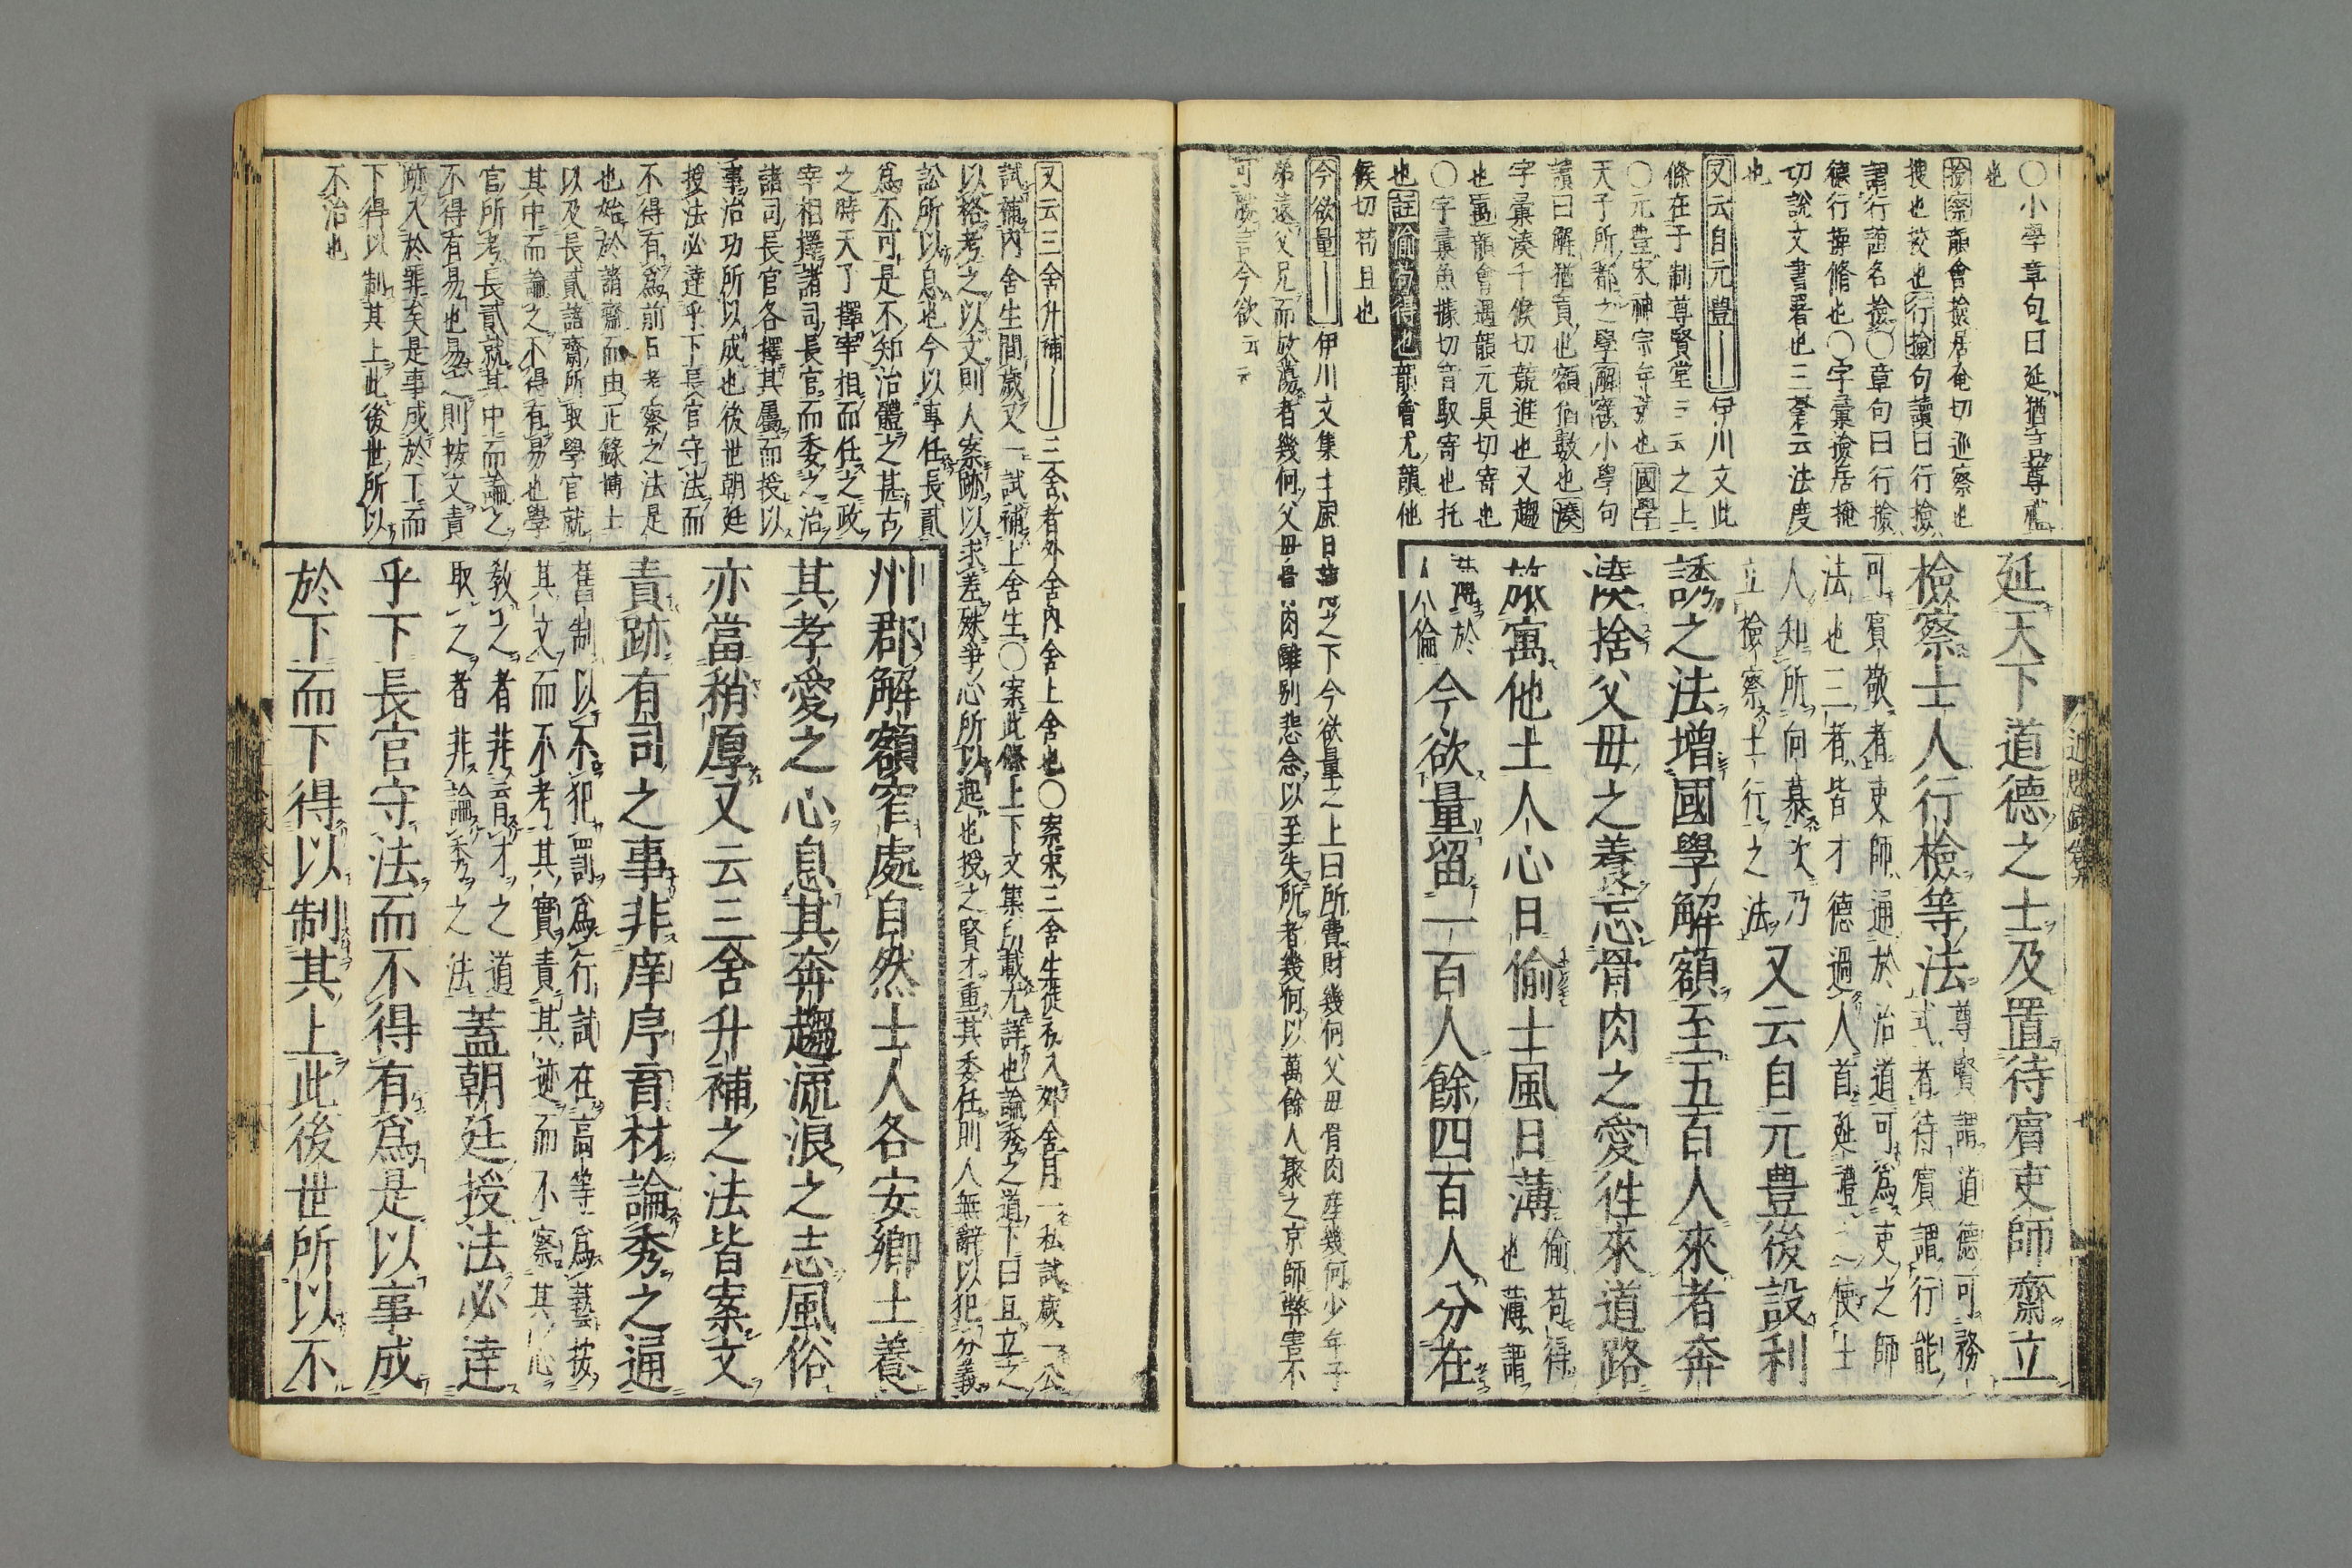 〇小學章句曰延猶言尊禮
也
撿察韻會撿居奄切巡察也
搜也挍也行撿句讀曰行撿
謂行誼名撿〇章句曰行撿
德行撙脩也〇字彙撿居掩
切說文書署也三蒼云法度
也
又云自元豊｜伊川文此
條在于制尊賢堂云云之上
〇元豊宋神宗年号也國學
天子所都之學解額小學句
讀曰解猶貢也額猶數也湊
字彙湊千候切競進也又趨
也寓韻會遇韻元具切寄也
〇字彙魚據切音馭寄也托
也註偷苟得也韻會尤韻他
候切苟且也
今欲量｜伊川文集士風日薄云云之下今欲量之上曰所費財幾何父母骨肉離幾何少年子
弟遠父兄而放蕩者幾何父母骨肉離別悲念以至失所者幾何以萬餘人聚之京師弊害不
可勝言今欲云云
延天下道德之士及置待賓吏師齋立
檢察士人行檢等法尊賢謂道德可務
式者待賓謂行能
可賓敬者吏師通於治道可為吏之師
法也三者皆才德過人首延禮之使士
人知所向慕次乃
立檢察士行之法又云自元豊後設利
誘之法增國學解額至五百人來者奔
湊捨父母之養忘骨肉之愛徃來道路
旅寓他土人心日偷士風日薄偷苟得
也薄謂
薄於
人倫今欲量留一百人餘四百人分在
又云三舍升補｜三舍者外舍内舍上舍也〇案宋三舍生徒初入外舍月一私試歲一公
試補内舍生間歲又一試補上舍生〇案此條上下文集所載尤詳也論秀之道下曰且立之
以格考之以文則人案跡以求差殊爭心所以起也授之賢才重其委任則人無辭以犯分義
訟所以息也今以專任長貳
為不可是不知治體之甚古
之時天子擇宰相而任之政
宰相擇諸司長官而委之治
諸司長官各擇其屬而授以
事治功所以成也後世朝廷
授法必達乎下長官守法而
不得有為前日考察之法是
也始於諸齋而由正錄博士
以及長貳諸齋所取學官就
其中而論之不得有易也學
官所考長貳就其中而論之
不得有易也易之則按文責
跡入於罪矣是事成於下而
下得以制其上此後世所以
不治也
州郡解額窄處自然士人各安鄉土養
其孝愛之心息其奔趨流浪之志風俗
亦當稍厚又云三舍升補之法皆案文
責跡有司之事非庠序育材論秀之道
舊制以不犯罰為行試在高等為藝按
其文而不考其實責其迹而不察其心
教之者非育才之道
取之者非論秀之法蓋朝廷授法必達
乎下長官守法而不得有為是以事成
於下而下得以制其上此後世所以不